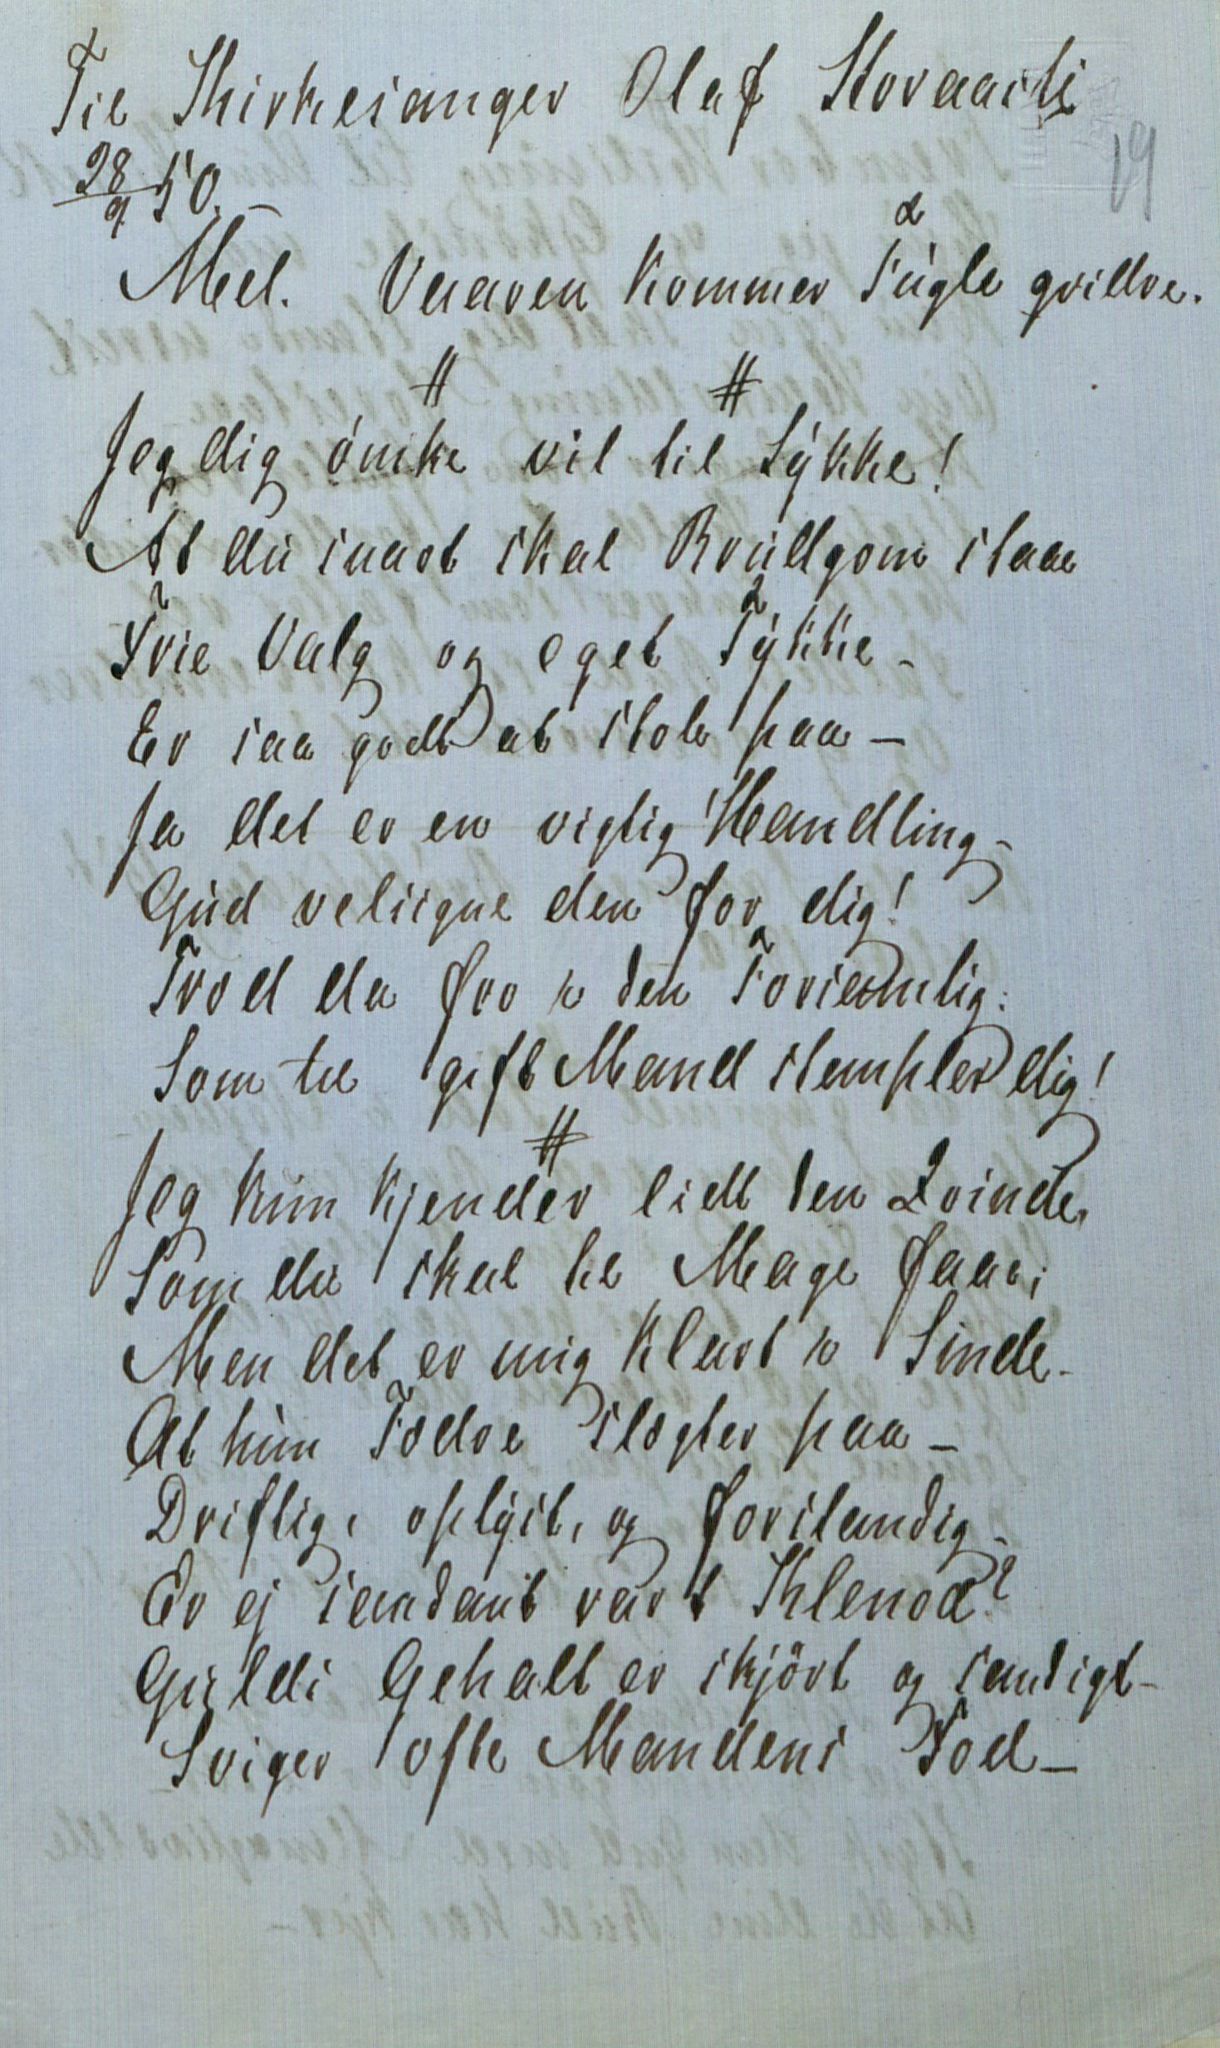 Til Kirkesanger Olaf Storaasli
19
28/9 50. –
Mel. Vaaren kommer Fugle qvidre.
Jeg dig önske vil til Lykke!
At du snart skal Brudgom staa
Frie Valg og eget Tykke –
Er saa godt at stole paa –
Ja det er en vigtig Handling –
Gud velsigne den for dig!
Tred da fro i den Forsamling:
Som til gift Mand stempler dig!
Jeg kun kjender lidt den Qvinde,
Som du skal til Mage faae;
Men det er mig klart i Sinde –
At hun Fædre slægter paa –
Driftig, oplyst, og forstandig –
Er ej saadant rart Klenod?
Gulds Gehalt er skjört og sandigt –
Sviger ofte Mandens Fod –